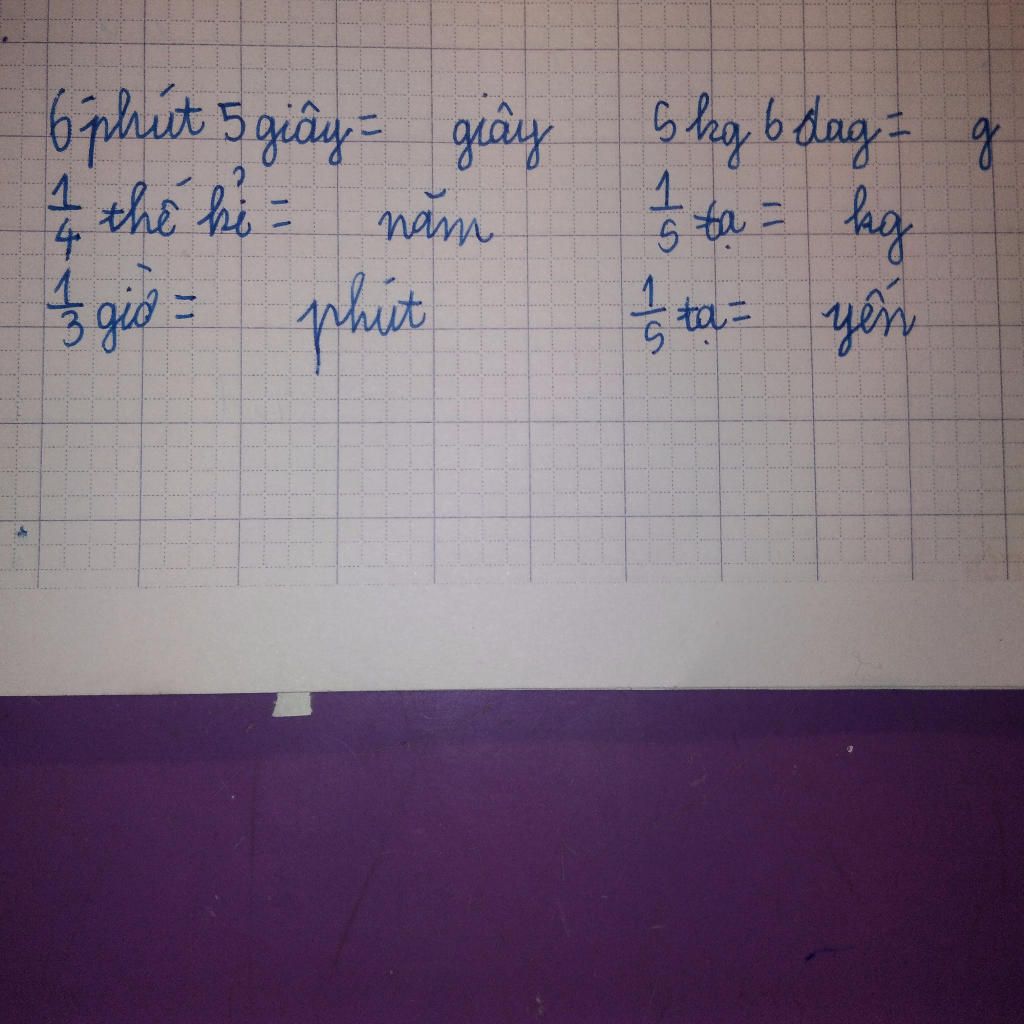 6 phút 5 giây = giây 5 kg 6 dag = g
1/4 thế kỉ = năm 1/5 tạ = kg
1/3 giờ = phút 1/5 tạ = yến